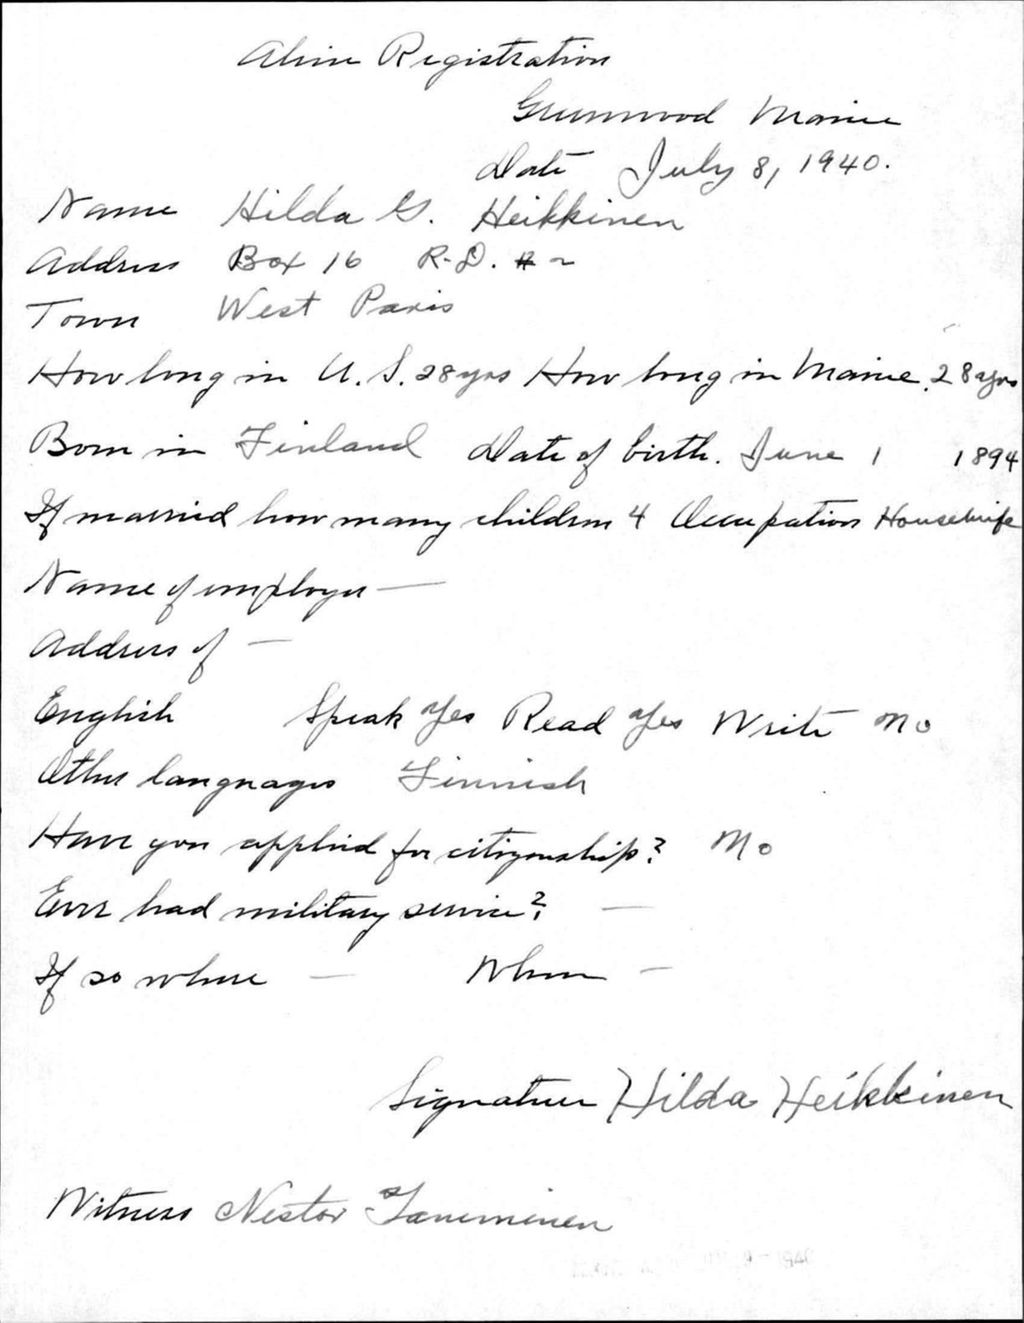 Alien Registration
Greenwood Maine
Date July 8, 1940.
Name Hilda G. Heikkinen
Address Box 16 R.D. # 2
Town West Paris
How long in U.S. 28 yrs How long in Maine. 28 yrs
Born in Finland Date of birth. June 1 1894
If married how many children 4 Occupation Housewife
Name of employer —
Address of —
English Speak Yes Read Yes Write No
Other languages Finnish
Have you applied for citizenship? No
Ever had military service? —
If so where — When —
Signature Hilda Heikkinen
Witness Nestor Tamminen